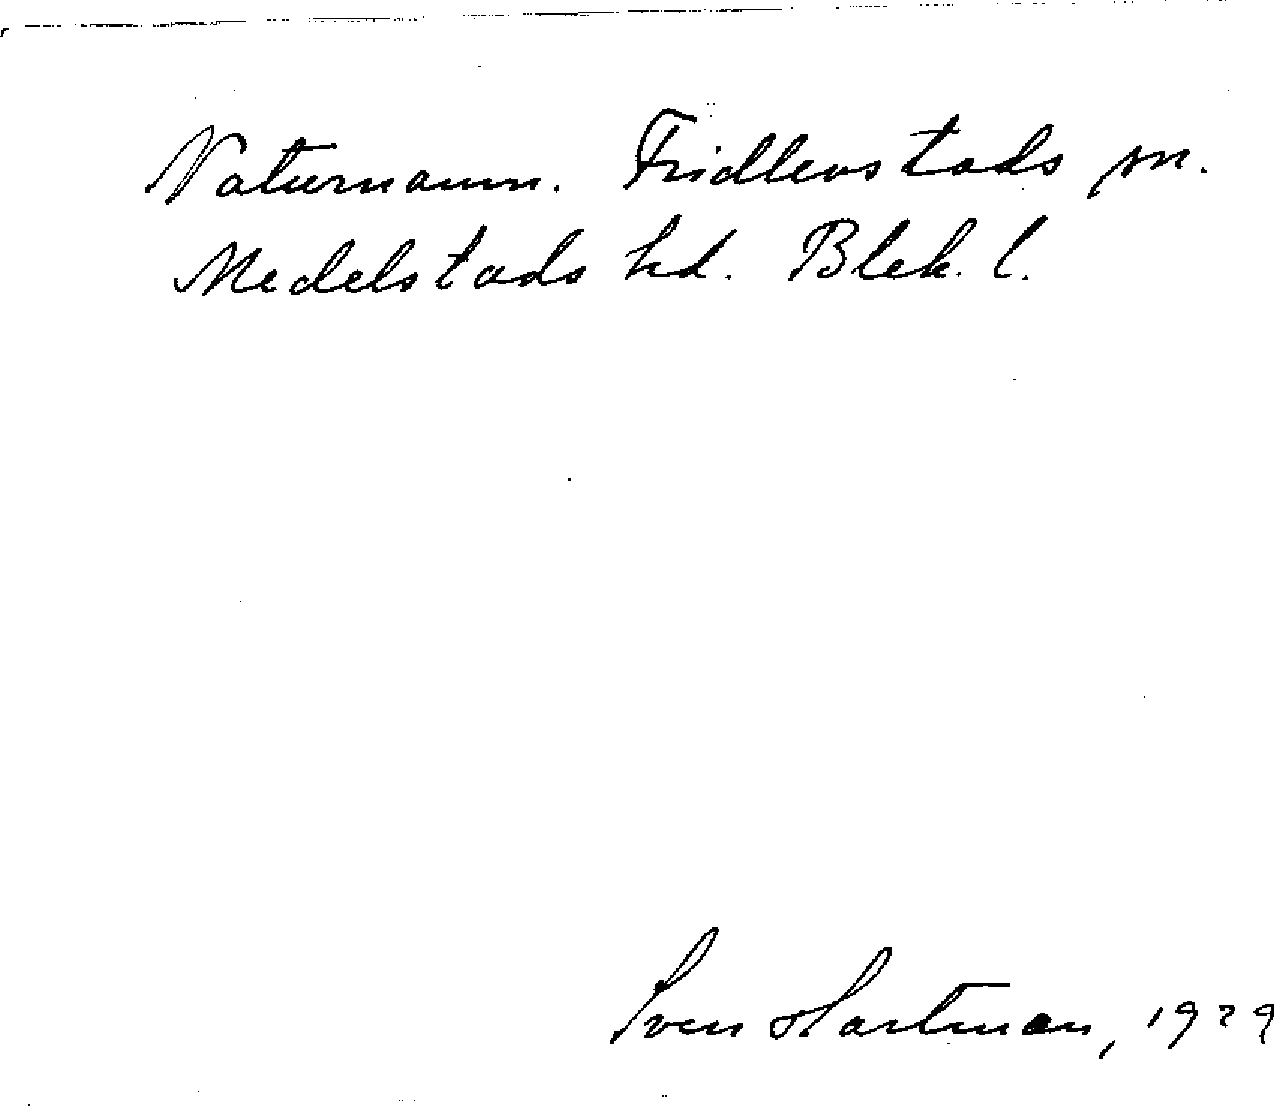 Naturnamn. Fridlevstads sn.
Medelstads hd. Blek. l.
Sven Hartman, 1929